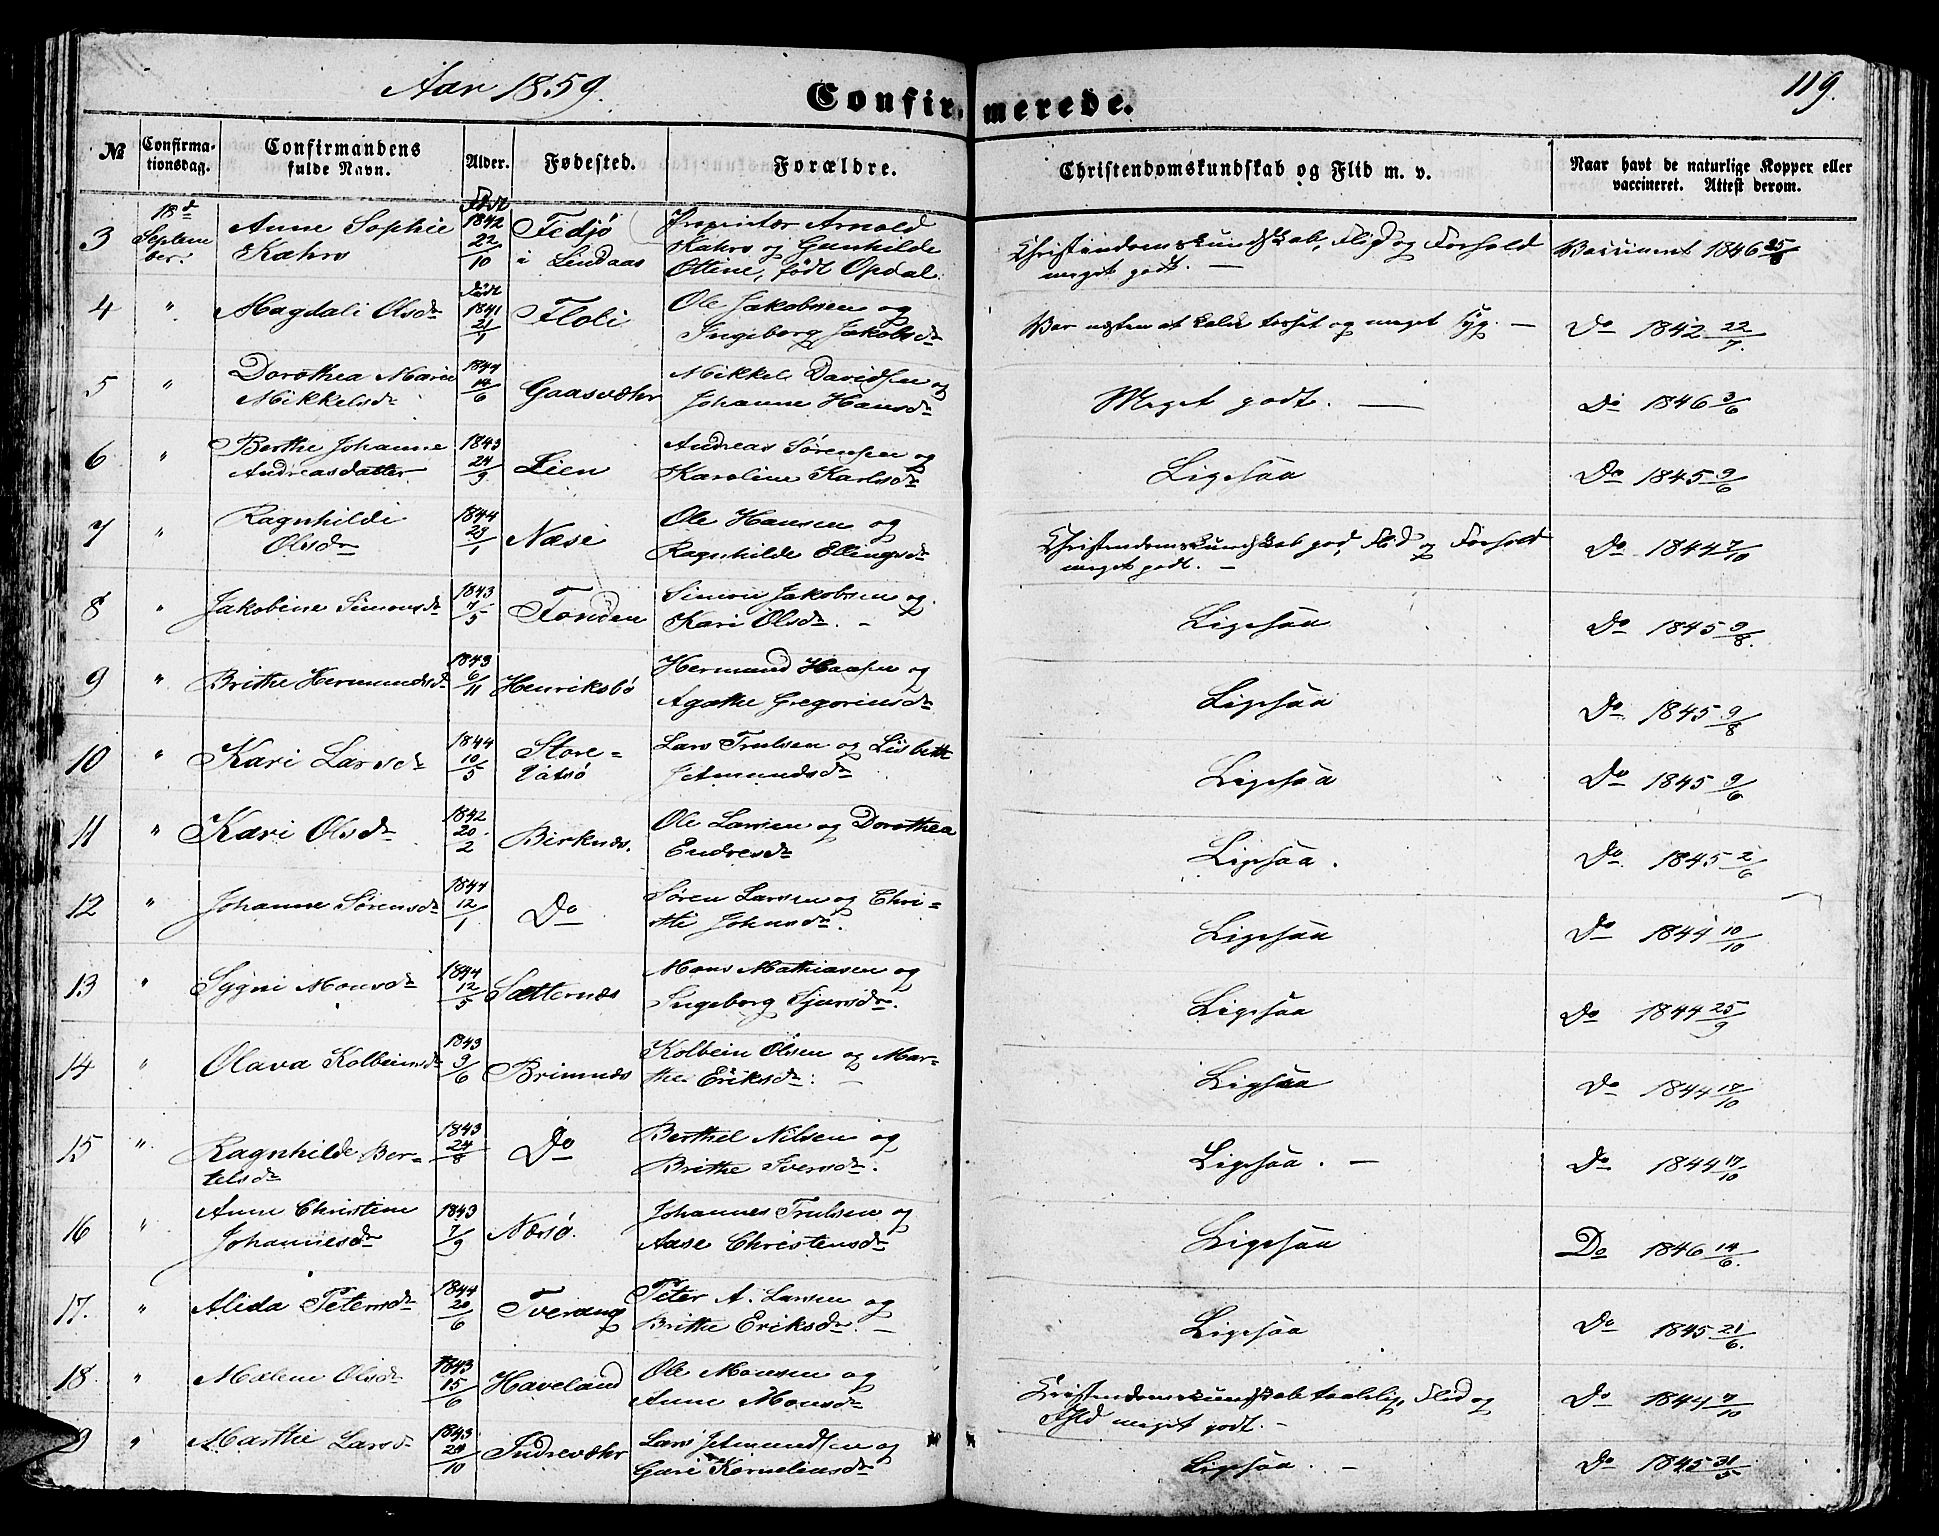 Aar 1859.
Confirmerede.
119.
№
Confirmationsdag.
Confirmandens fulde Navn.
Alder.
Fødested.
Forældre.
Christendomskundskab og Flid m. v.
Naar havt de naturlige Kopper eller vaccineret. Attest derom.
3 18d September. Anne Sophie Kahrs Født 1842 22/10 Fedjø i Lindaas Proprietær Arnold Kahrs og Gunhilde Ottine, født Opdal. Christendomskundskab, Flid og Forhold meget godt. — Vaccineret 1846 25/8
4 " Magdali Olsdr Født 1841 21/1 Floli Ole Jakobsen og Ingeborg Jakobsdr Var næsten at kalde og meget syg. — Do 1842 22/7.
5 " Dorothea Marie Mikkelsdr 1844 14/6 Gaasvæhr Mikkel Davidsen og Johanne Hansdr Meget godt. — Do 1846 3/6
6 " Berthe Johanne Andreasdatter 1843 24/9 Lien Andreas Sørensen og Karoline Karlsdr Ligesaa Do 1845 9/6
7 " Ragnhilde Olsdr 1844 29/1 Næse Ole Hansen og Ragnhilde Ellingsdr Christendomskundskab god, Flid og Forhold meget godt. — Do 1844 7/10
8 " Jakobine Simonsdr 1843 7/5 Fonden Simon Jakobsen og Kari Olsdr. — Ligesaa Do 1845 9/8.
9 " Brithe Hermundsdr 1843 6/11 Henriksbø Hermund Haasen og Agathe Gregoriusdr Ligesaa Do 1845 9/8
10 " Kari Larsdr 1844 10/5 Store- Vatsø Lars Trulsen og Lisbett Jetmundsdr Ligesaa Do 1845 9/6
11 " Kari Olsdr 1842 20/2 Birknæs. Ole Larsen og Dorothea Endresdr Ligesaa. Do. 1845 2/6
12 " Johanne Sørensdr 1844 12/1 Do Søren Larsen og Christi Johnsdr. Ligesaa Do 1844 10/10
13 " Sygni Monsdr 1844 12/5 Sætternæs Mons Mathiasen og Ingeborg Sjursdr. Ligesaa Do 1844 25/9
14 " Olava Kolbeinsdr 1843 9/6 Brimnæs Kolbein Olsen og Marthe Eriksdr. — Ligesaa Do 1844 17/10
15 " Ragnhilde Bertelsdr 1843 24/8 Do Berthel Nilsen og Brithe Iversdr. Ligesaa. — Do 1844 17/10
16 " Anne Christine Johannesdr 1843 7/9 Nærsø. Johannes Trulsen og Aase Christensdr Ligesaa Do 1846 14/6.
17. " Alida Petersdr 1844 20/6 Tverang Peter A. Larsen og Brithe Eriksdr. — Ligesaa Do 1845 21/6.
18. " Malene Olsdr 1843 15/6 Haveland Ole Monsen og Anne Monsdr Christendomskundskab taalelig, Flid og Fhld meget godt. — Do 1844 7/10
9 " Marthe Larsdr 1843 29/10 Indrevæhr Lars Jetmundsen og Gari Korneliusdr Ligesaa. — Do 1845 31/5